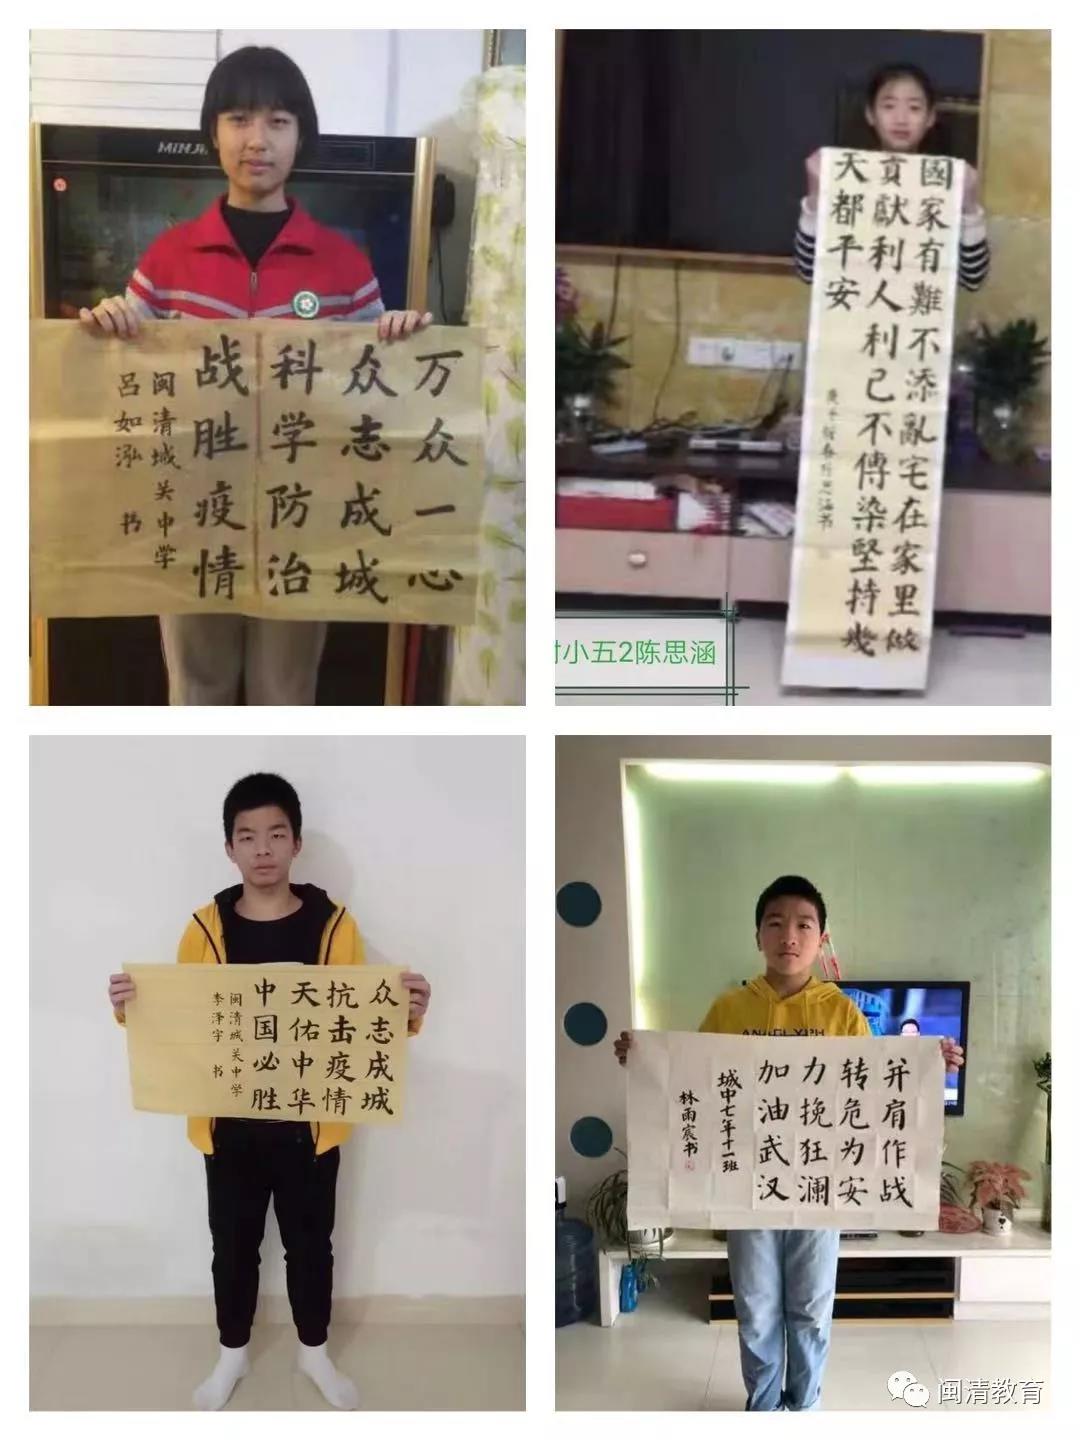 MINJI
万众一心
众志成城
科学防治
战胜疫情
闽清城关中学
吕如泓 书
國家有難不添亂宅在家里做
貢獻利人利己不傳染堅持幾
天都平安
陈思涵书
小五2陈思涵
众志成城
抗击疫情
天佑中华
中国必胜
闽清城关中学
李泽宇 书
并肩作战
转危为安
力挽狂澜
加油武汉
城中七年十一班
林雨宸书
闽清教育